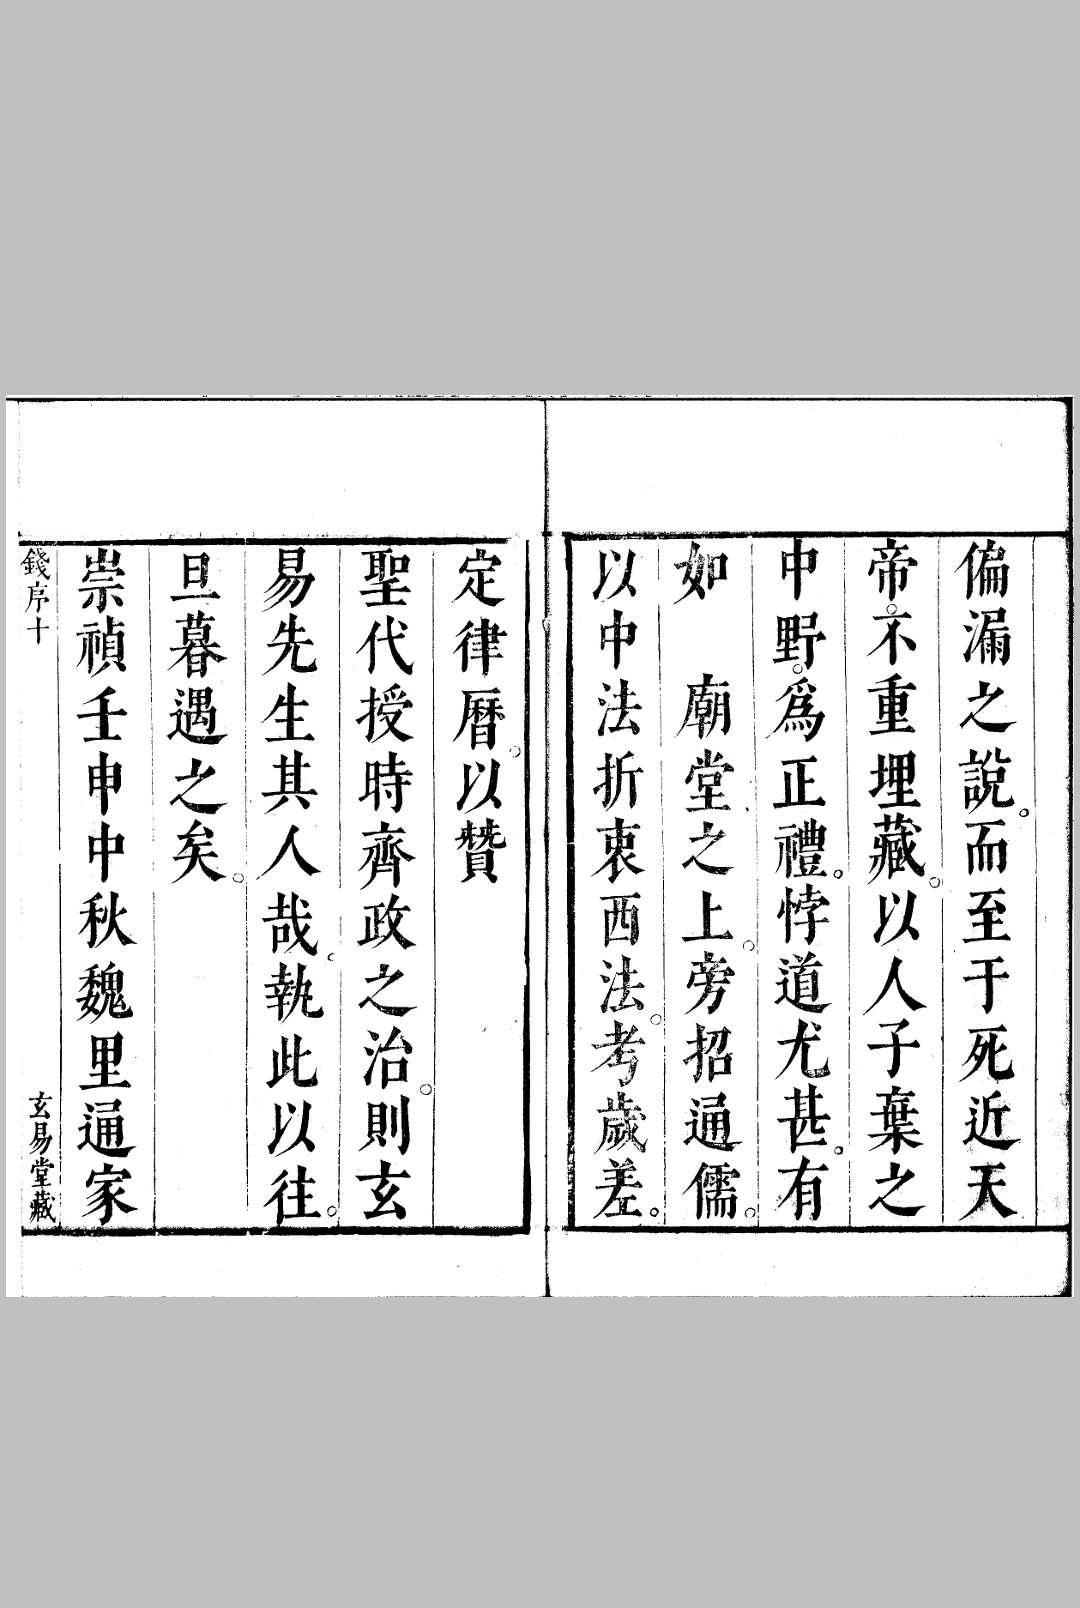 偏漏之說。而至于死近天
帝。不重埋藏。以人子棄之
中野。爲正禮。悖道尤甚。有
如　廟堂之上。旁招通儒。
以中法折衷西法。考歲差。
定律曆。以贊
聖代授時齊政之治。則玄
易先生其人哉。執此以往。
旦暮遇之矣。
崇禎壬申中秋魏里通家
錢序十
玄易堂藏